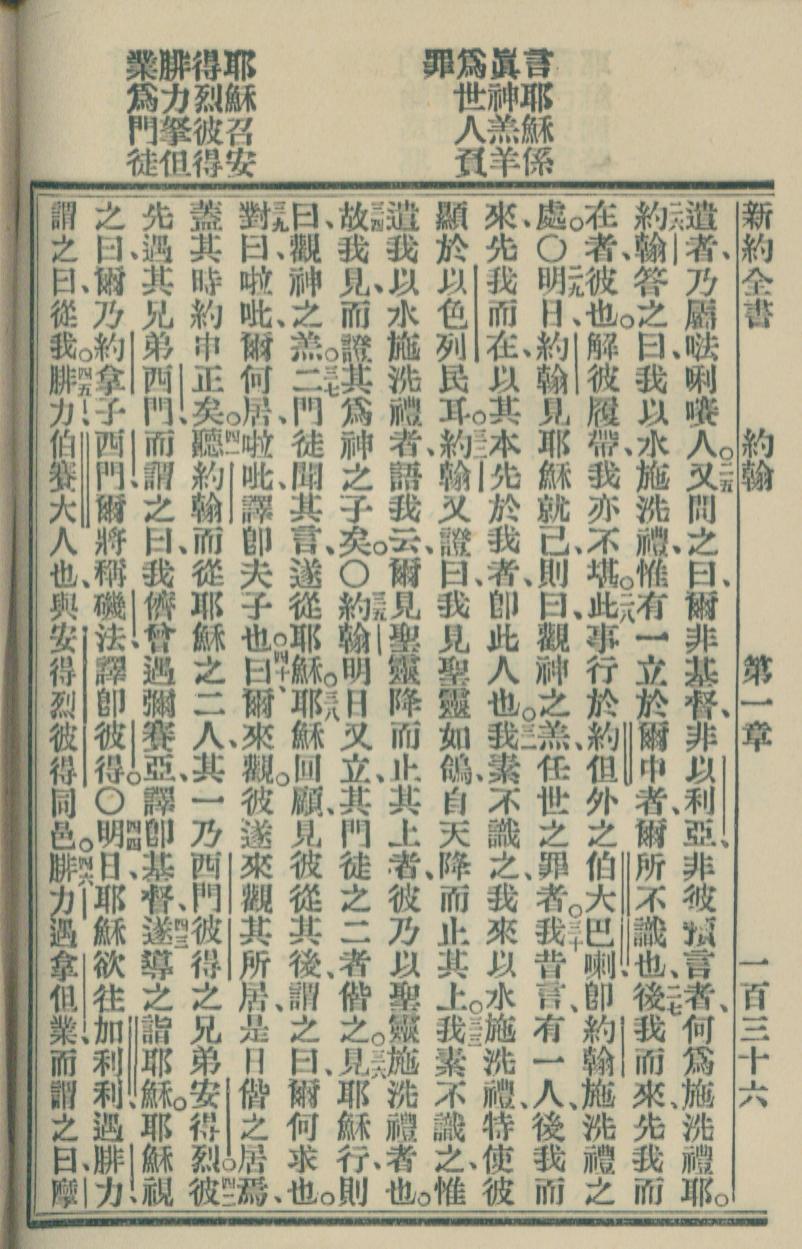 言耶穌係
眞神羔羊
爲世人負
罪
耶穌召安
得烈彼得
腓力拏但
業爲門徒
新約全書 約翰 第一章 一百三十六
遣者、乃𠵽唎嚷人、○二五又問之曰、爾非基督、非以利亞、非彼預言者、何爲施洗禮耶。
二六約翰答之曰、我以水施洗禮、惟有一立於爾中者、爾所不識也、二七後我而來、先我而
在者、彼也。解彼履帶、我亦不堪。二八此事行於約但外之伯大巴喇、卽約翰施洗禮之
處。○二九明日、約翰見耶穌就己、則曰、觀神之羔、任世之罪者。三十我昔言、有一人、後我而
來、先我而在、以其本先於我者、卽此人也。三一我素不識之、我來以水施洗禮、特使彼
顯於以色列民耳。三二約翰又證曰、我見聖靈如鴿、自天降而止其上。三三我素不識之、惟
遣我以水施洗禮者、語我云、爾見聖靈降而止其上者、彼乃以聖靈施洗禮者也。
三四故我見、而證其爲神之子矣。○三五約翰明日又立、其門徒之二者偕之。三六見耶穌行、則
曰、觀神之羔。三七二門徒聞其言、遂從耶穌。三八耶穌回顧、見彼從其後、謂之曰、爾何求也。
三九對曰、啦吡、爾何居、啦吡譯卽夫子也。四十曰、爾來觀、彼遂來觀其所居、是日偕之居焉、
蓋其時約申正矣。四一聽約翰而從耶穌之二人、其一乃西門彼得之兄弟安得烈。四二彼
先遇其兄弟西門、而謂之曰、我儕曾遇彌賽亞、譯卽基督、四三遂導之詣耶穌。耶穌視
之曰、爾乃約拿子西門、爾將稱磯法、譯卽彼得。○四四明日、耶穌欲往加利利、遇腓力、
謂之曰、從我。四五腓力、伯賽大人也、與安得烈彼得同邑。四六腓力遇拿但業、而謂之曰、摩